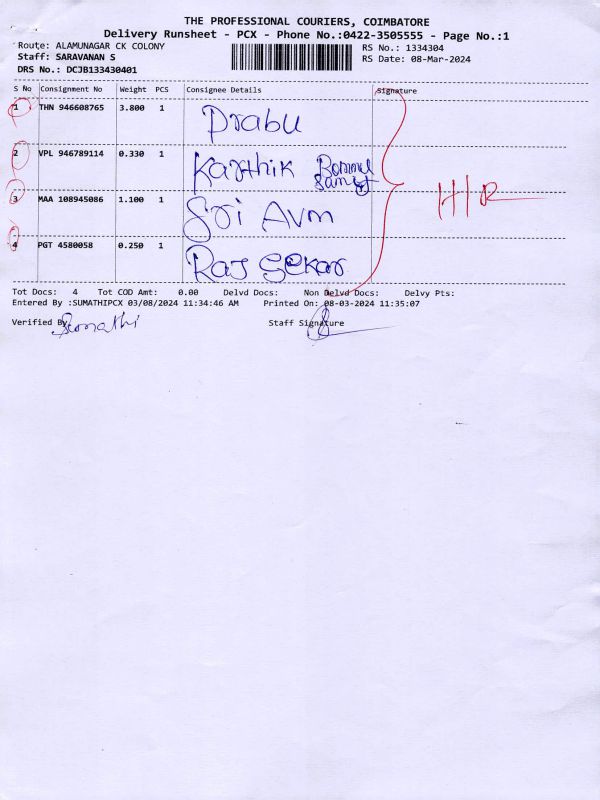 THE PROFESSIONAL COURIERS, COIMBATORE
Delivery Runsheet - PCX - Phone No.:0422-3505555 - Page No.:1
Route: ALAMUNAGAR CK COLONY RS No.: 1334304
Staff: SARAVANAN S RS Date: 08-Mar-2024
DRS No.: DCJB133430401
S No Consignment No Weight PCS Consignee Details Signature
1 THN 946608765 3.800 1 Prabu
2 VPL 946789114 0.330 1 Karthik Bommu Samy
3 MAA 108945086 1.100 1 Sri Avm
H/R
4 PGT 4580058 0.250 1 Raj Sekar
Tot Docs: 4 Tot COD Amt: 0.00 Delvd Docs: Non Delvd Docs: Delvy Pts:
Entered By :SUMATHIPCX 03/08/2024 11:34:46 AM Printed On: 08-03-2024 11:35:07
Verified By Sumathi Staff Signature